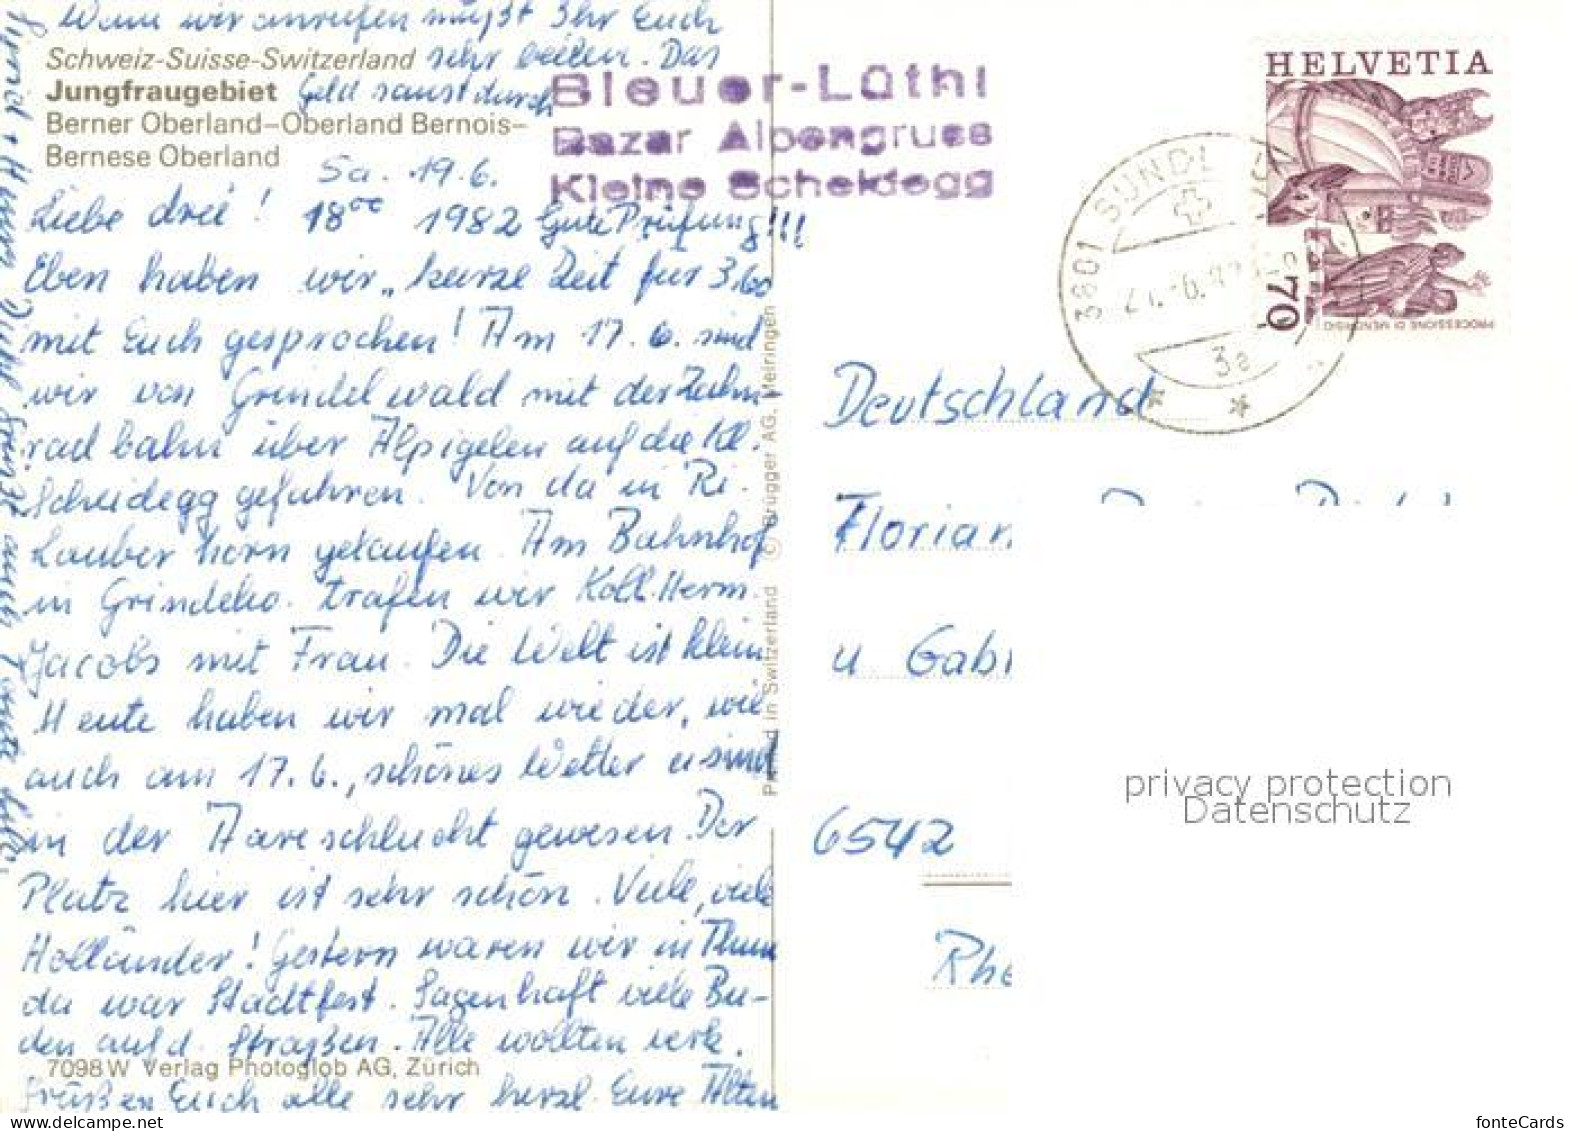 Wenn wir anrufen müßt Ihr Euch
sehr beilen. Das
Geld saust durch
Schweiz-Suisse-Switzerland
Jungfraugebiet
Berner Oberland–Oberland Bernois–
Bernese Oberland
Bleuer-Lüthi
Bazar Alpengruss
Kleine Scheidegg
HELVETIA
70
PROCESSIONE DI MENDRISIO
3801
Sa. 19.6.
Liebe drei! 18ºº 1982 Gute Prüfung!!!
Eben haben wir „kurze Zeit für 3,60
mit Euch gesprochen! Am 17. 6. sind
wir von Grindelwald mit der Zahn-
radbahn über Alpigelen auf die Kl.
Scheidegg gefahren. Von da in Ri.
Lauberhorn gelaufen. Am Bahnhof
in Grindelw. trafen wir Koll. Herm.
Jacobs mit Frau. Die Welt ist klein
Heute haben wir mal wieder, wie
auch am 17. 6., schönes Wetter u sind
in der Aareschlucht gewesen. Der
Platz hier ist sehr schön. Viele, viele
Holländer! Gestern waren wir in Thun
da war Stadtfest. Sagenhaft viele Bu-
den auf d. Straßen. Alle wollten verk.
7098 W Verlag Photoglob AG, Zürich
Grüßen Euch alle sehr herzl. Eure Alten
Printed in Switzerland © Brügger AG, Meiringen
Deutschland
Florian
u Gabi
6542
Rhe
privacy protection
Datenschutz
fonteCards